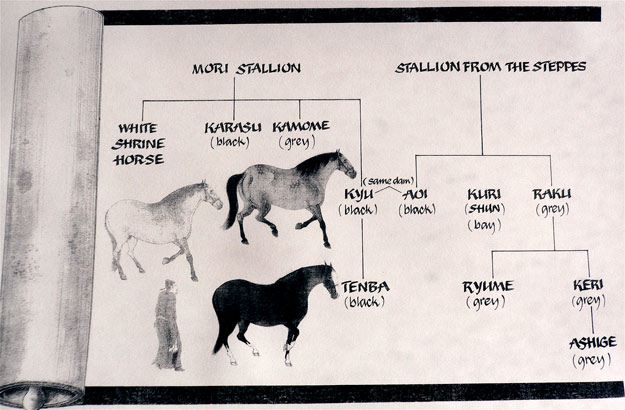 MORI STALLION
STALLION FROM THE STEPPES
WHITE
SHRINE
HORSE
KARASU
(black)
KAMOME
(grey)
(same dam)
KYU
(black)
AOI
(black)
KURI
(SHUN)
(bay)
RAKU
(grey)
TENBA
(black)
RYUME
(grey)
KERI
(grey)
ASHIGE
(grey)